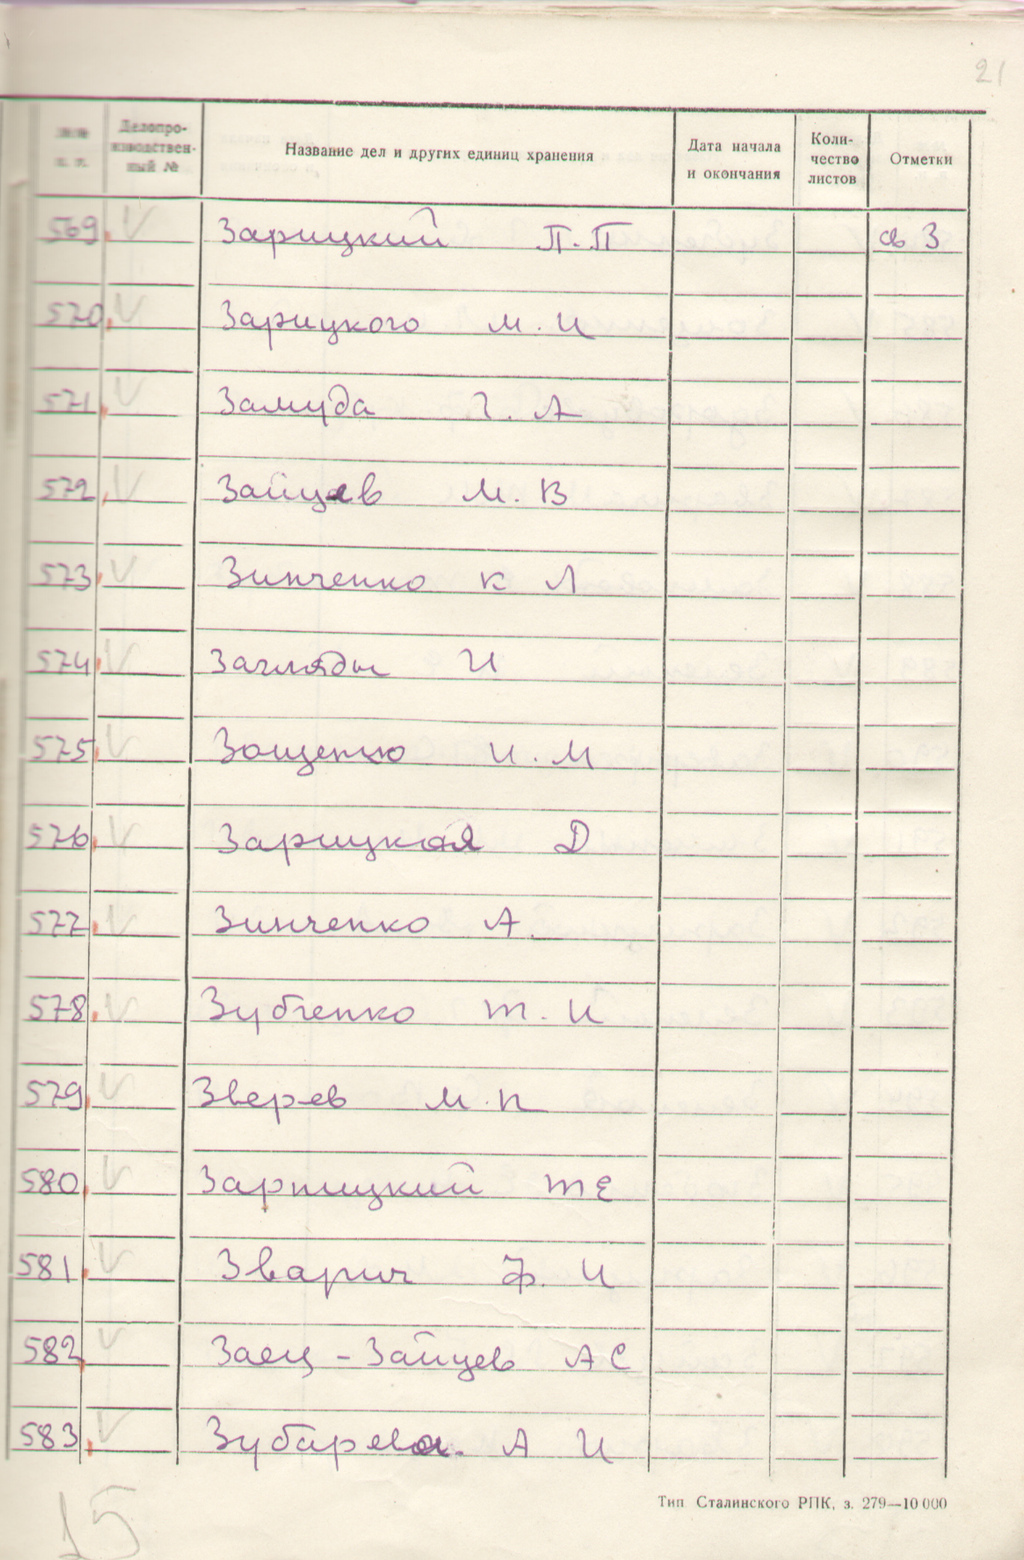 21
№№ п. п. Делопроизводственный № Название дел и других единиц хранения Дата начала и окончания Количество листов Отметки
569. V Зарицкий П.П св 3
570. V Зарицкого М. И
571. V Замуда Г. А
572. V Зайцев М. В
573. V Зинченко К Л
574. V Загляды И
575. V Зощенко И. М
576. V Зарицкая Д
577. V Зинченко А.
578. V Зубченко Т. И
579. V Зверев М. П
580. V Зарицкий Т Е
581. V Зварич Ф. И
582. V Заец - Зайцев А С
583. V Зубарева. А И
Тип Сталинского РПК, з. 279—10 000
15